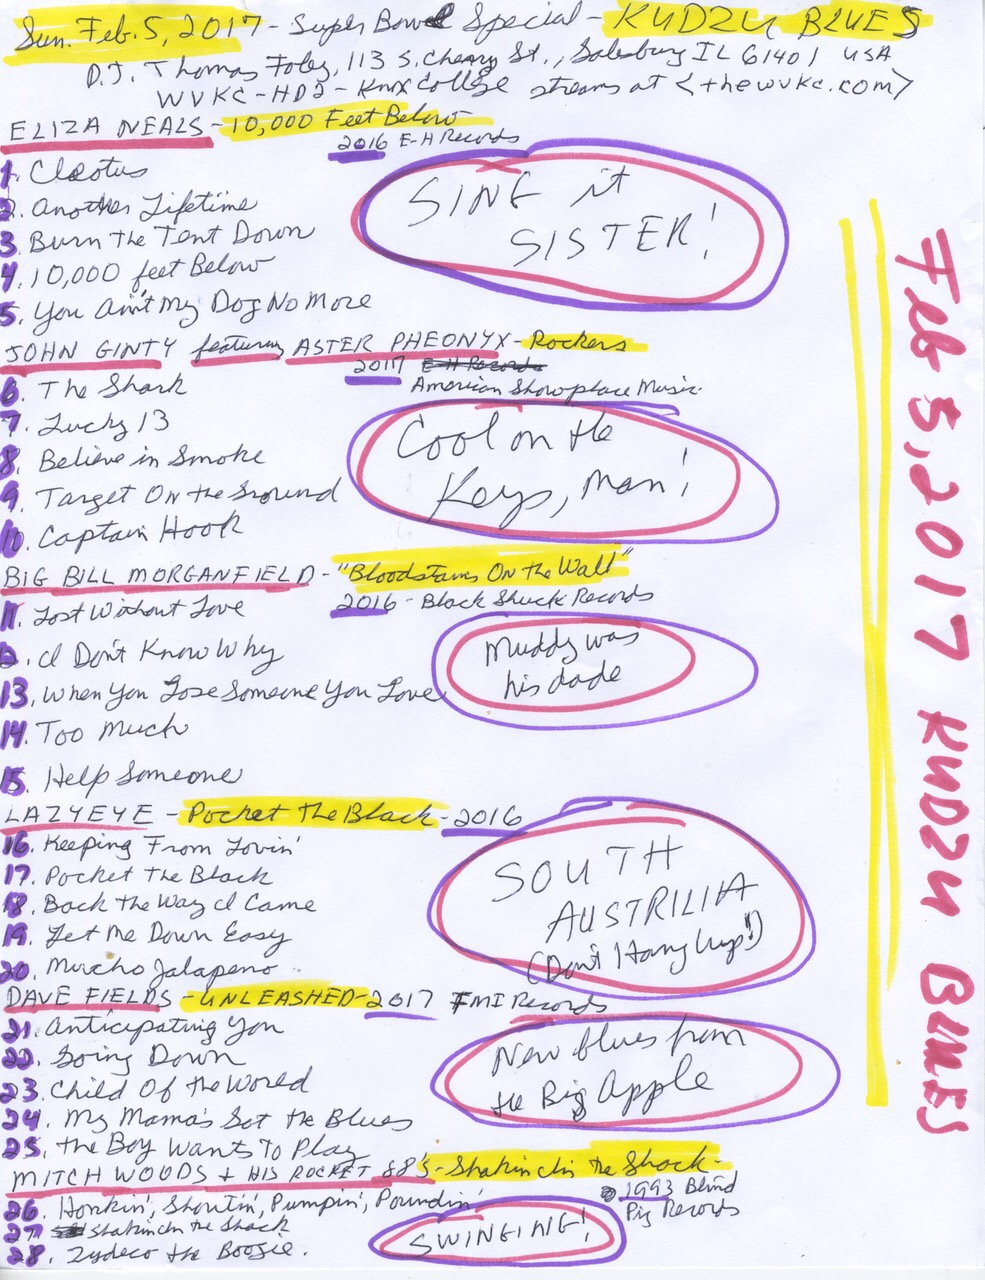 Sun. Feb. 5, 2017 - Super Bowl Special - KUDZU BLUES
D.J. Thomas Foley, 113 S. Cherry St., Galesburg IL 61401 USA
WVKC-HD2 - Knox College streams at <thewvkc.com>
ELIZA NEALS - 10,000 Feet Below
2016 E-H Records
1. Cleotus
2. Another Lifetime
3. Burn the Tent Down
4. 10,000 feet Below
5. You Ain't My Dog No More
SING it
SISTER!
JOHN GINTY featuring ASTER PHEONYX - Rockers
2017 E-H Records
American Showplace Music
6. The Shark
7. Lucky 13
8. Believe in Smoke
9. Target On the Ground
10. Captain Hook
Cool on the
Keys, man!
BIG BILL MORGANFIELD - "Bloodstains On the Wall"
2016 - Black Shuck Records
11. Lost Without Love
12. I Don't Know Why
13. When You Lose Someone You Love
14. Too Much
15. Help Someone
Muddy was
his dade
LAZYEYE - Pocket The Black - 2016
16. Keeping From Lovin'
17. Pocket the Black
18. Back the Way I Came
19. Let Me Down Easy
20. Mucho Jalapeno
SOUTH
AUSTRILIA
(Don't Hang Up!)
DAVE FIELDS - UNLEASHED - 2017 FMI Records
21. Anticipating You
22. Going Down
23. Child Of the World
24. My Mama's Got the Blues
25. The Boy Wants To Play
New blues from
the Big Apple
MITCH WOODS + HIS ROCKET 88's - Shakin In the Shack -
1993 Blind
Pig Records
26. Honkin', Shoutin', Pumpin', Poundin'
27. Shakin In the Shack
28. Zydeco the Boogie.
SWINGING!
Feb 5, 2017 KUDZU BLUES